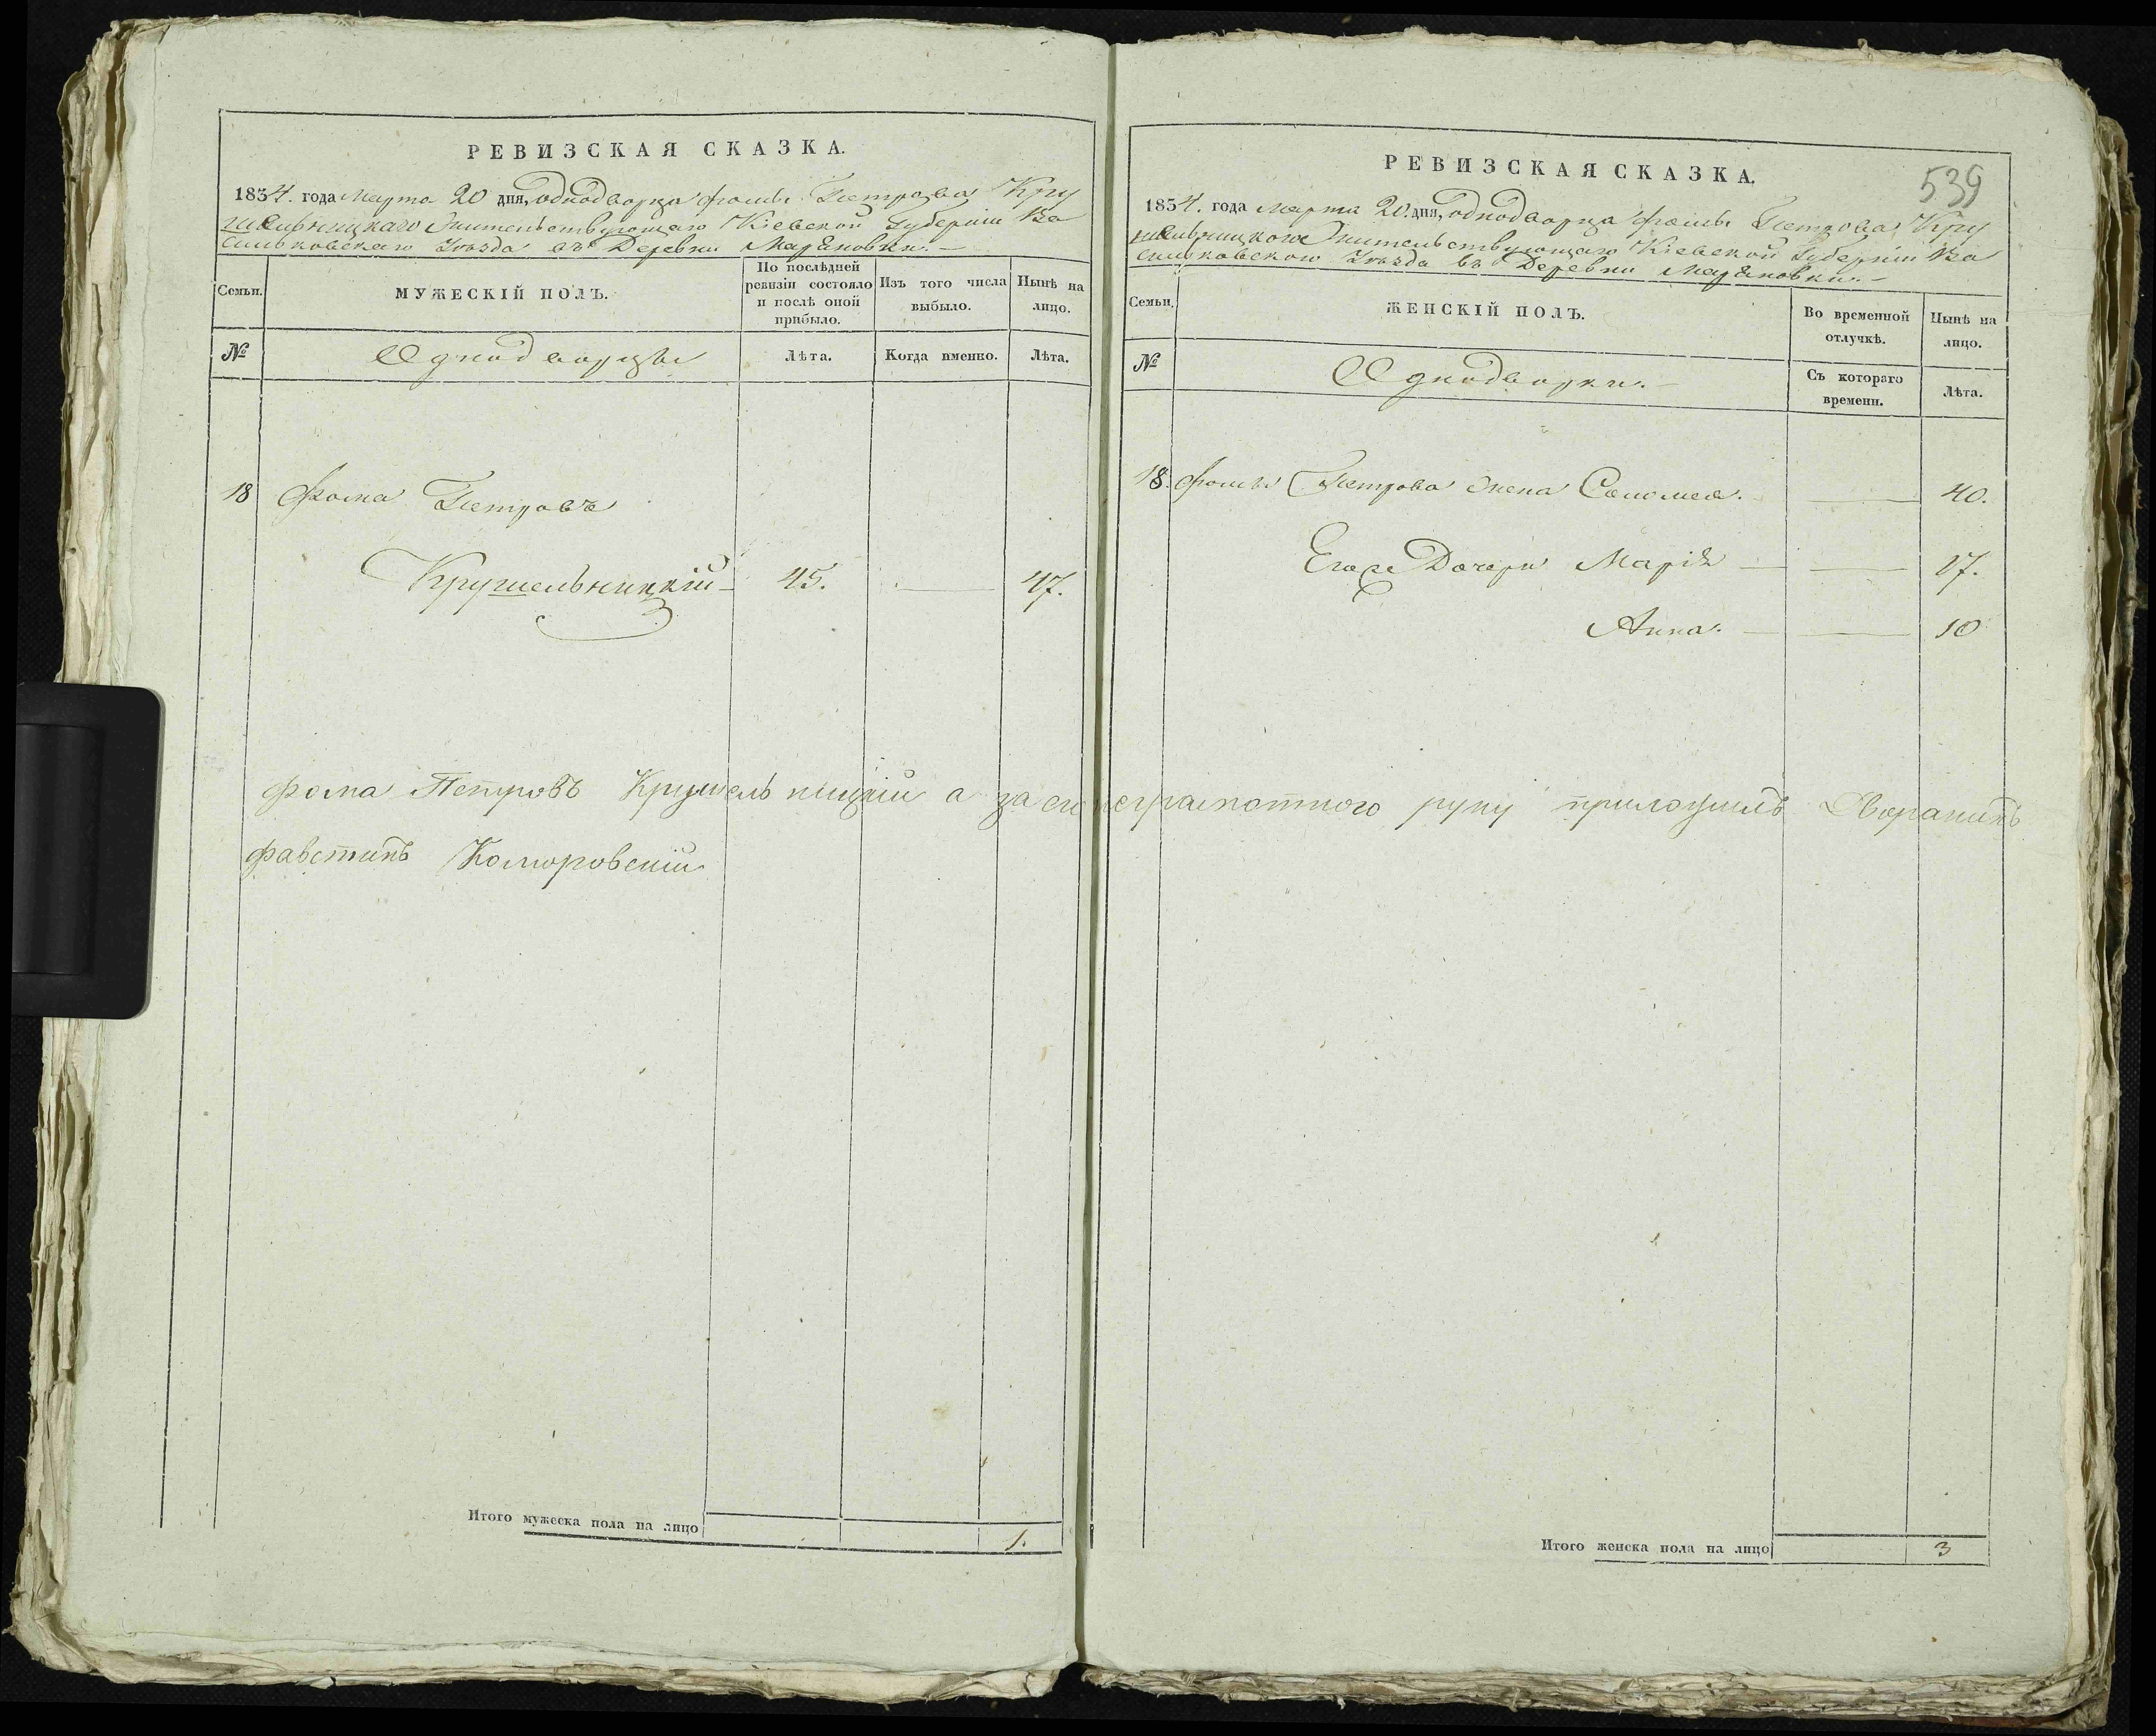 РЕВИЗСКАЯ СКАЗКА.
1834. года Марта 20 дня, однодворца Фомы Петрова Кру
шельницкаго жительствующаго Кіевской Губерніи Ва
сильковскаго Уѣзда въ Деревни Маряновки.
Семьи.
МУЖЕСКІЙ ПОЛЪ.
По послѣдней ревизіи состояло и послѣ оной прибыло.
Изъ того числа выбыло.
Нынѣ на лицо.
№
Однодворцы
Лѣта.
Когда именно.
Лѣта.
18 Фома Петровъ
Крушельницкій 45. — 47.
Фома Петровъ Крушельницкій а за его неграмотного руку приложилъ Дворанинъ
Фавстинъ Коморовскій
Итого мужеска пола на лицо 1.
539
РЕВИЗСКАЯ СКАЗКА.
1834. года Марта 20. дня, однодворца Фомы Петрова Кру
шельницкого жительствующаго Кіевской Губерніи Ва
сильковского Уѣзда въ Деревни Маряновки.
Семьи.
ЖЕНСКІЙ ПОЛЪ.
Во временной отлучкѣ.
Нынѣ на лицо.
№
Однодворки.
Съ котораго времени.
Лѣта.
18. Фомы Петрова жена Саломея. — 40.
Его же Дочери Марія — — 17.
Анна. — — 10
Итого женска пола на лицо 3